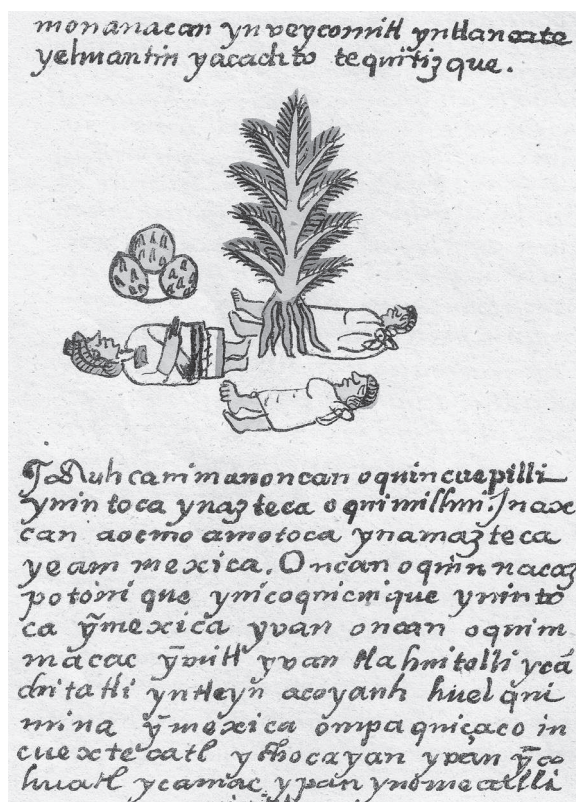 monanacan ynveycomitl yntlancate
yehuantin yacachto tequitizque.
¶ Auh ca nimanoncan oquincuepilli
ynin toca ynazteca oquimilhui. Inax
can aocmo amotoca ynamazteca
yeam mexica. Oncan oquin nacaz
potoni que ynicoqnicuique yninto
ca ȳmexica yvan oncan oqnim
macac ȳmitl yvan tlahnitolli ycā
chitatli yntleyn acoyanh huelqni
mina ȳmexica ompaqniçaco in
cuextecatl ychocayan ypan ȳco
huatl ycamac, ypan ynomecalli